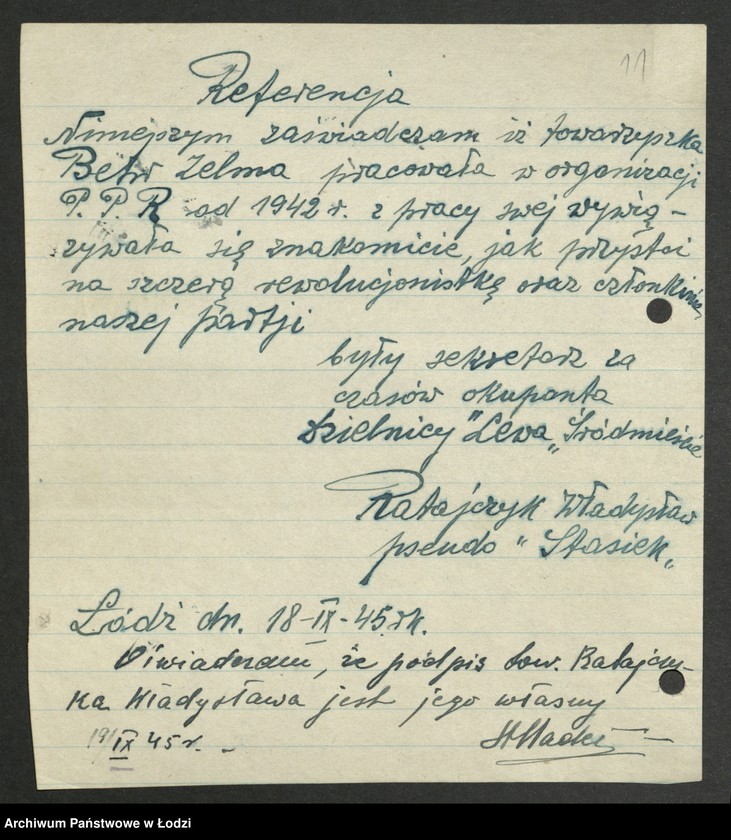 11
Referencja
Niniejszym zaświadczam iż towarzyszka
Beter Zelma pracowała w organizacji
P. P. R od 1942 r. z pracy swej wywią-
zywała się znakomicie, jak przystoi
na szczerą rewolucjonistkę oraz członkinię
naszej partji
były sekretarz za
czasów okupanta
Dzielnicy "Lewa" Śródmieście
Ratajczyk Władysław
pseudo "Stasiek"
Łódź dn. 18-IX-45 rk.
Oświadczam, że podpis tow. Ratajczy-
ka Władysława jest jego własny
19/IX 45 r.
Archiwum Państwowe w Łodzi